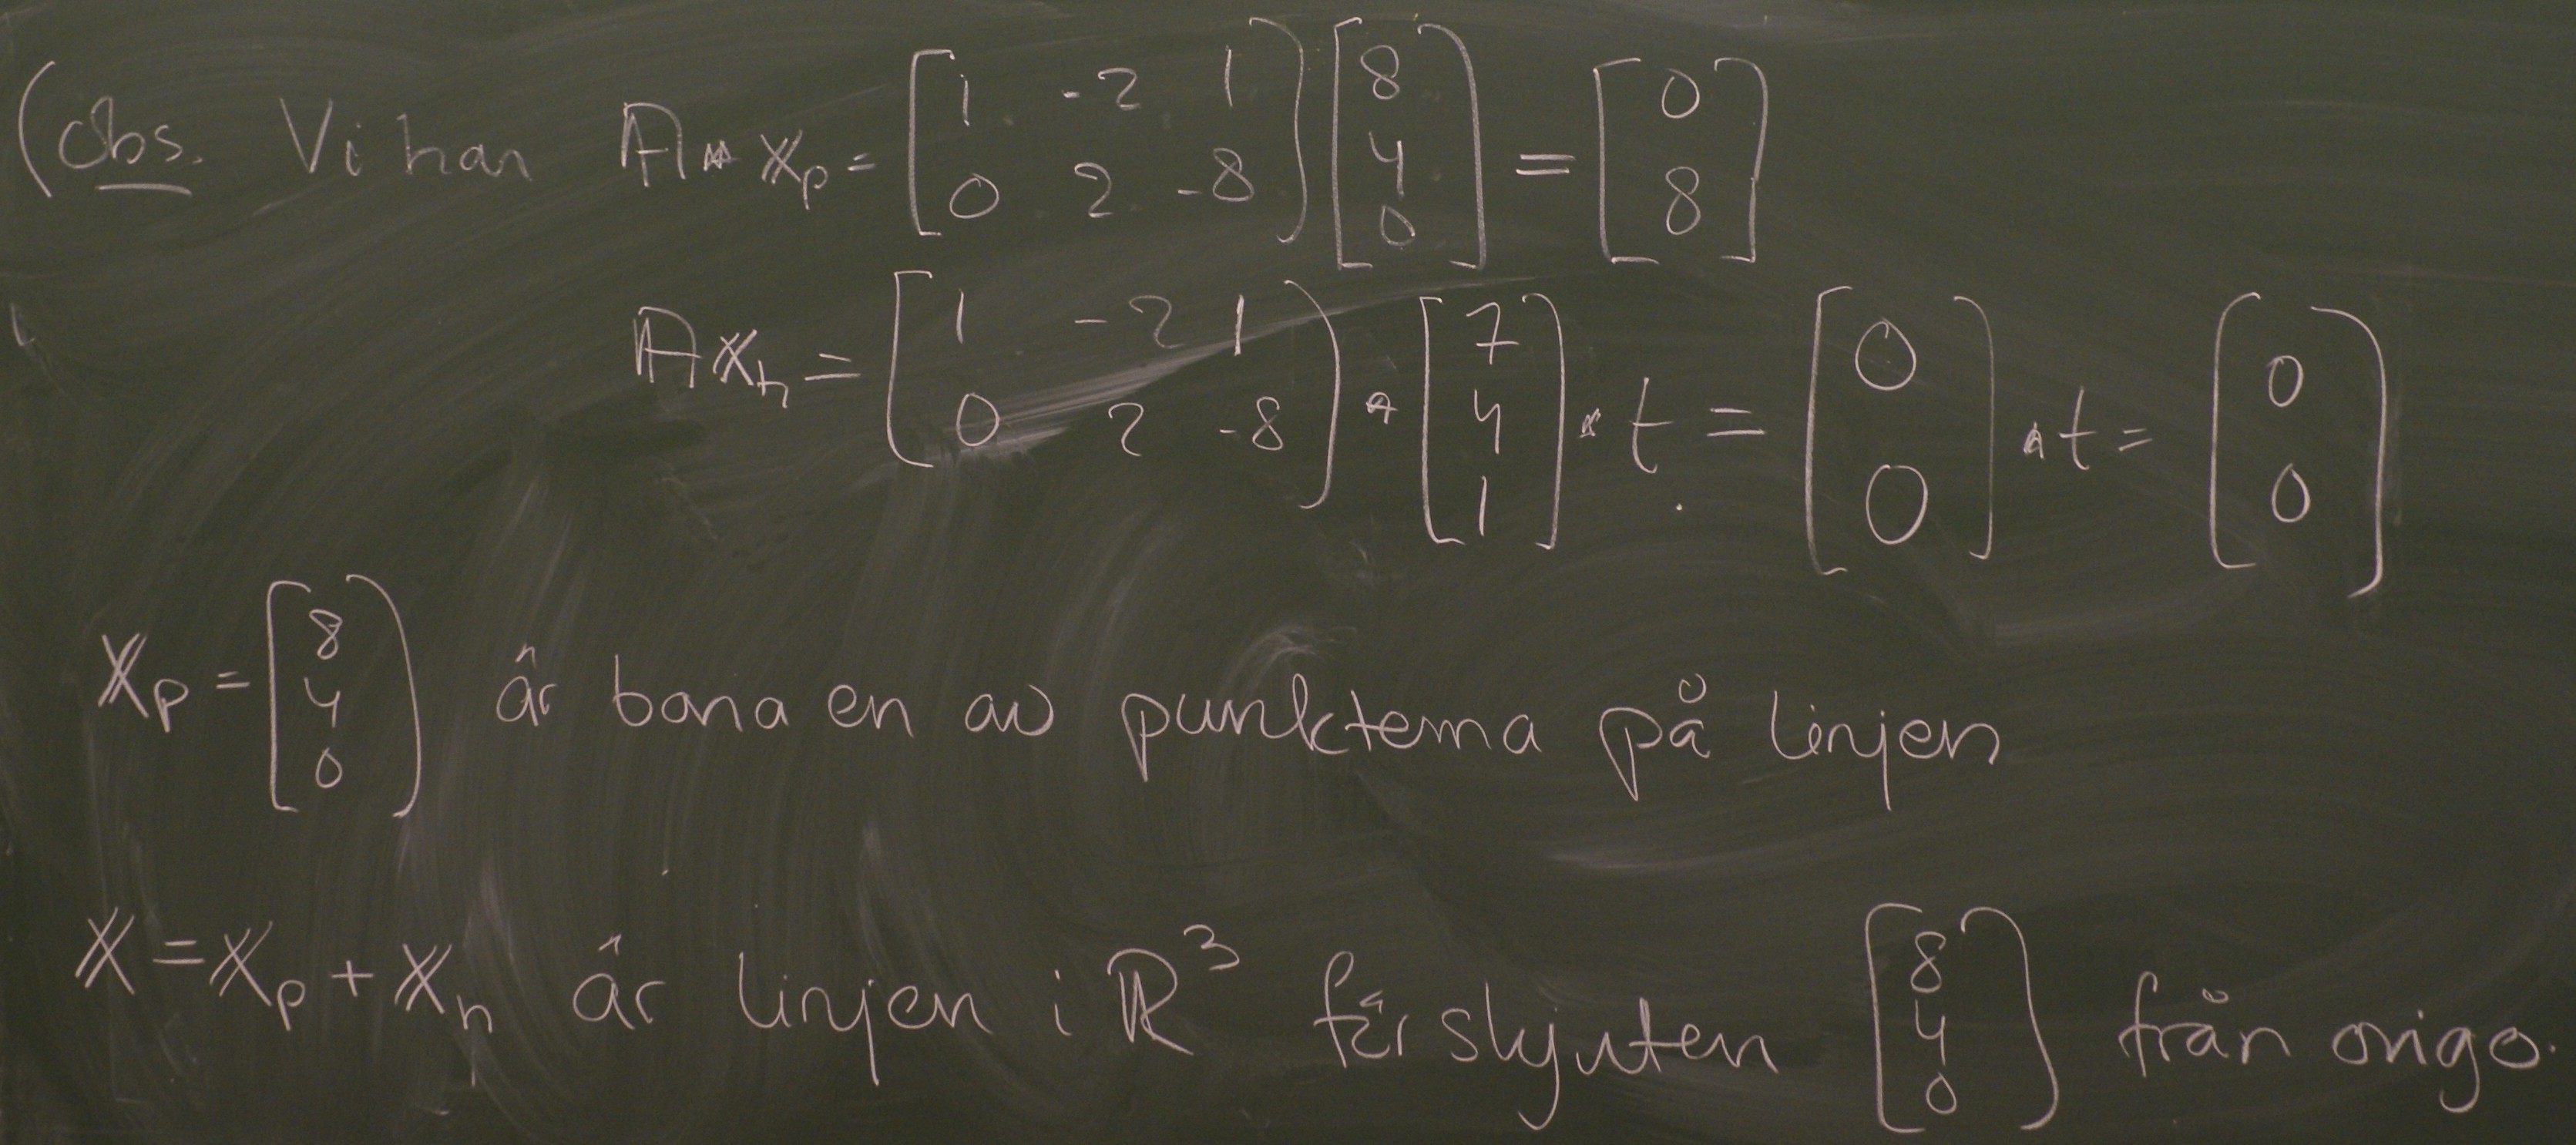 (Obs. Vi har A·xₚ = [1 -2 1; 0 2 -8] [8; 4; 0] = [0; 8]
Axₕ = [1 -2 1; 0 2 -8] · [7; 4; 1] · t = [0; 0] · t = [0; 0]
xₚ = [8; 4; 0] är bara en av punkterna på linjen
x = xₚ + xₕ är linjen i ℝ³ förskjuten [8; 4; 0] från origo.